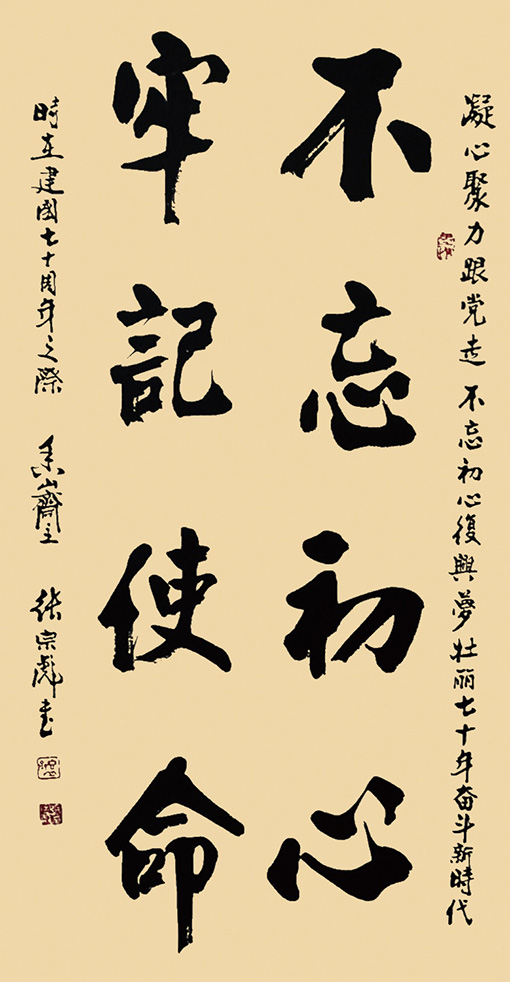 凝心聚力跟党走 不忘初心復興夢 壮丽七十年奋斗新時代
不忘初心
牢記使命
時在建國七十周年之際 山齋主 张宗彪書